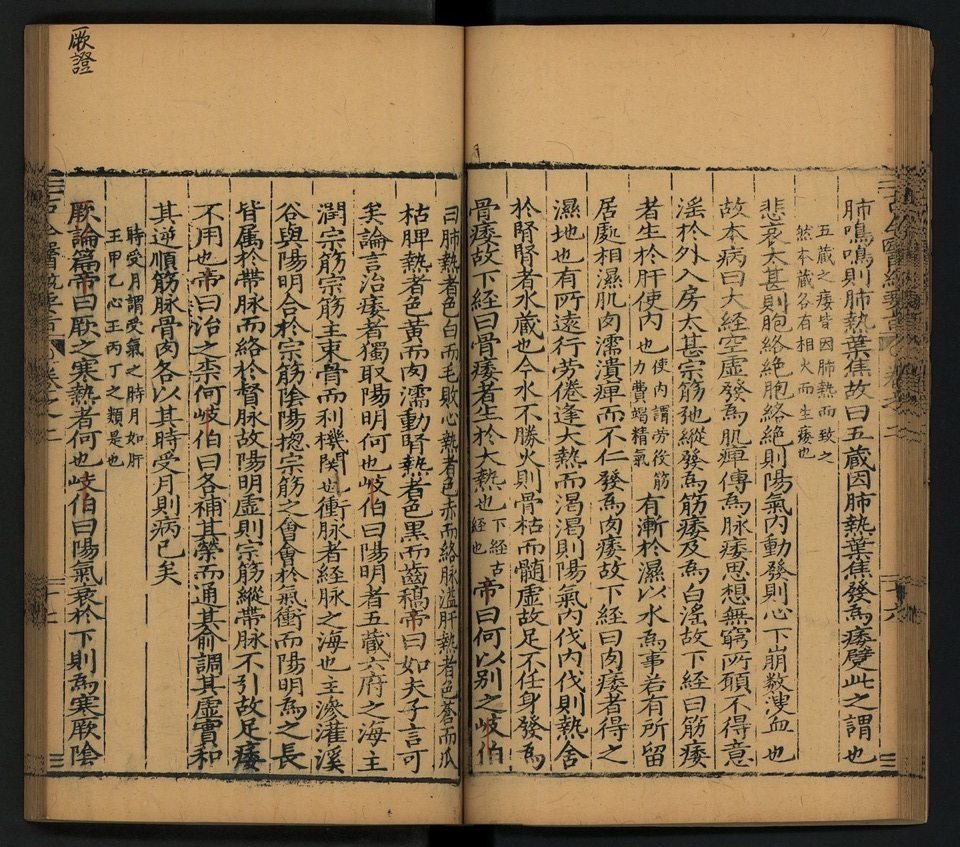 肺鳴鳴則肺熱葉焦故曰五蔵因肺熱葉焦發為痿躄此之謂也
五蔵之痿皆因肺熱而致之
然本蔵各有相火而生痿也
悲哀太甚則胞絡絶胞絡絶則陽氣内動發則心下崩數溲血也
故本病曰大経空虚發為肌痺傳為脉痿思想無窮所願不得意
淫於外入房太甚宗筋弛縱發為筋痿及為白淫故下経曰筋痿
者生於肝使内也使内謂劳役筋力費竭精氣有漸於濕以水為事若有所留
居處相濕肌肉濡漬痺而不仁發為肉痿故下経曰肉痿者得之
濕地也有所遠行劳倦逢大熱而渴渴則陽氣内伐内伐則熱舎
於腎腎者水蔵也今水不勝火則骨枯而髓虚故足不任身發為
骨痿故下経曰骨痿者生於大熱也下経古経也帝曰何以别之岐伯
曰肺熱者色白而毛敗心熱者色赤而絡脉溢肝熱者色蒼而爪
枯脾熱者色黄而肉濡動腎熱者色黒而齒稿帝曰如夫子言可
矣論言治痿者獨取陽明何也岐伯曰陽明者五蔵六府之海主
潤宗筋宗筋主束骨而利機関也衝脉者経脉之海也主滲灌溪
谷與陽明合於宗筋陰陽揔宗筋之會會於氣衝而陽明為之長
皆属於帯脉而絡於督脉故陽明虚則宗筋縱帯脉不引故足痿
不用也帝曰治之柰何岐伯曰各補其榮而通其俞調其虚實和
其逆順筋脉骨肉各以其時受月則病已矣
時受月謂受氣之時月如肝
王甲乙心王丙丁之類是也
厥論篇帝曰厥之寒熱者何也岐伯曰陽氣衰於下則為寒厥陰
厥證